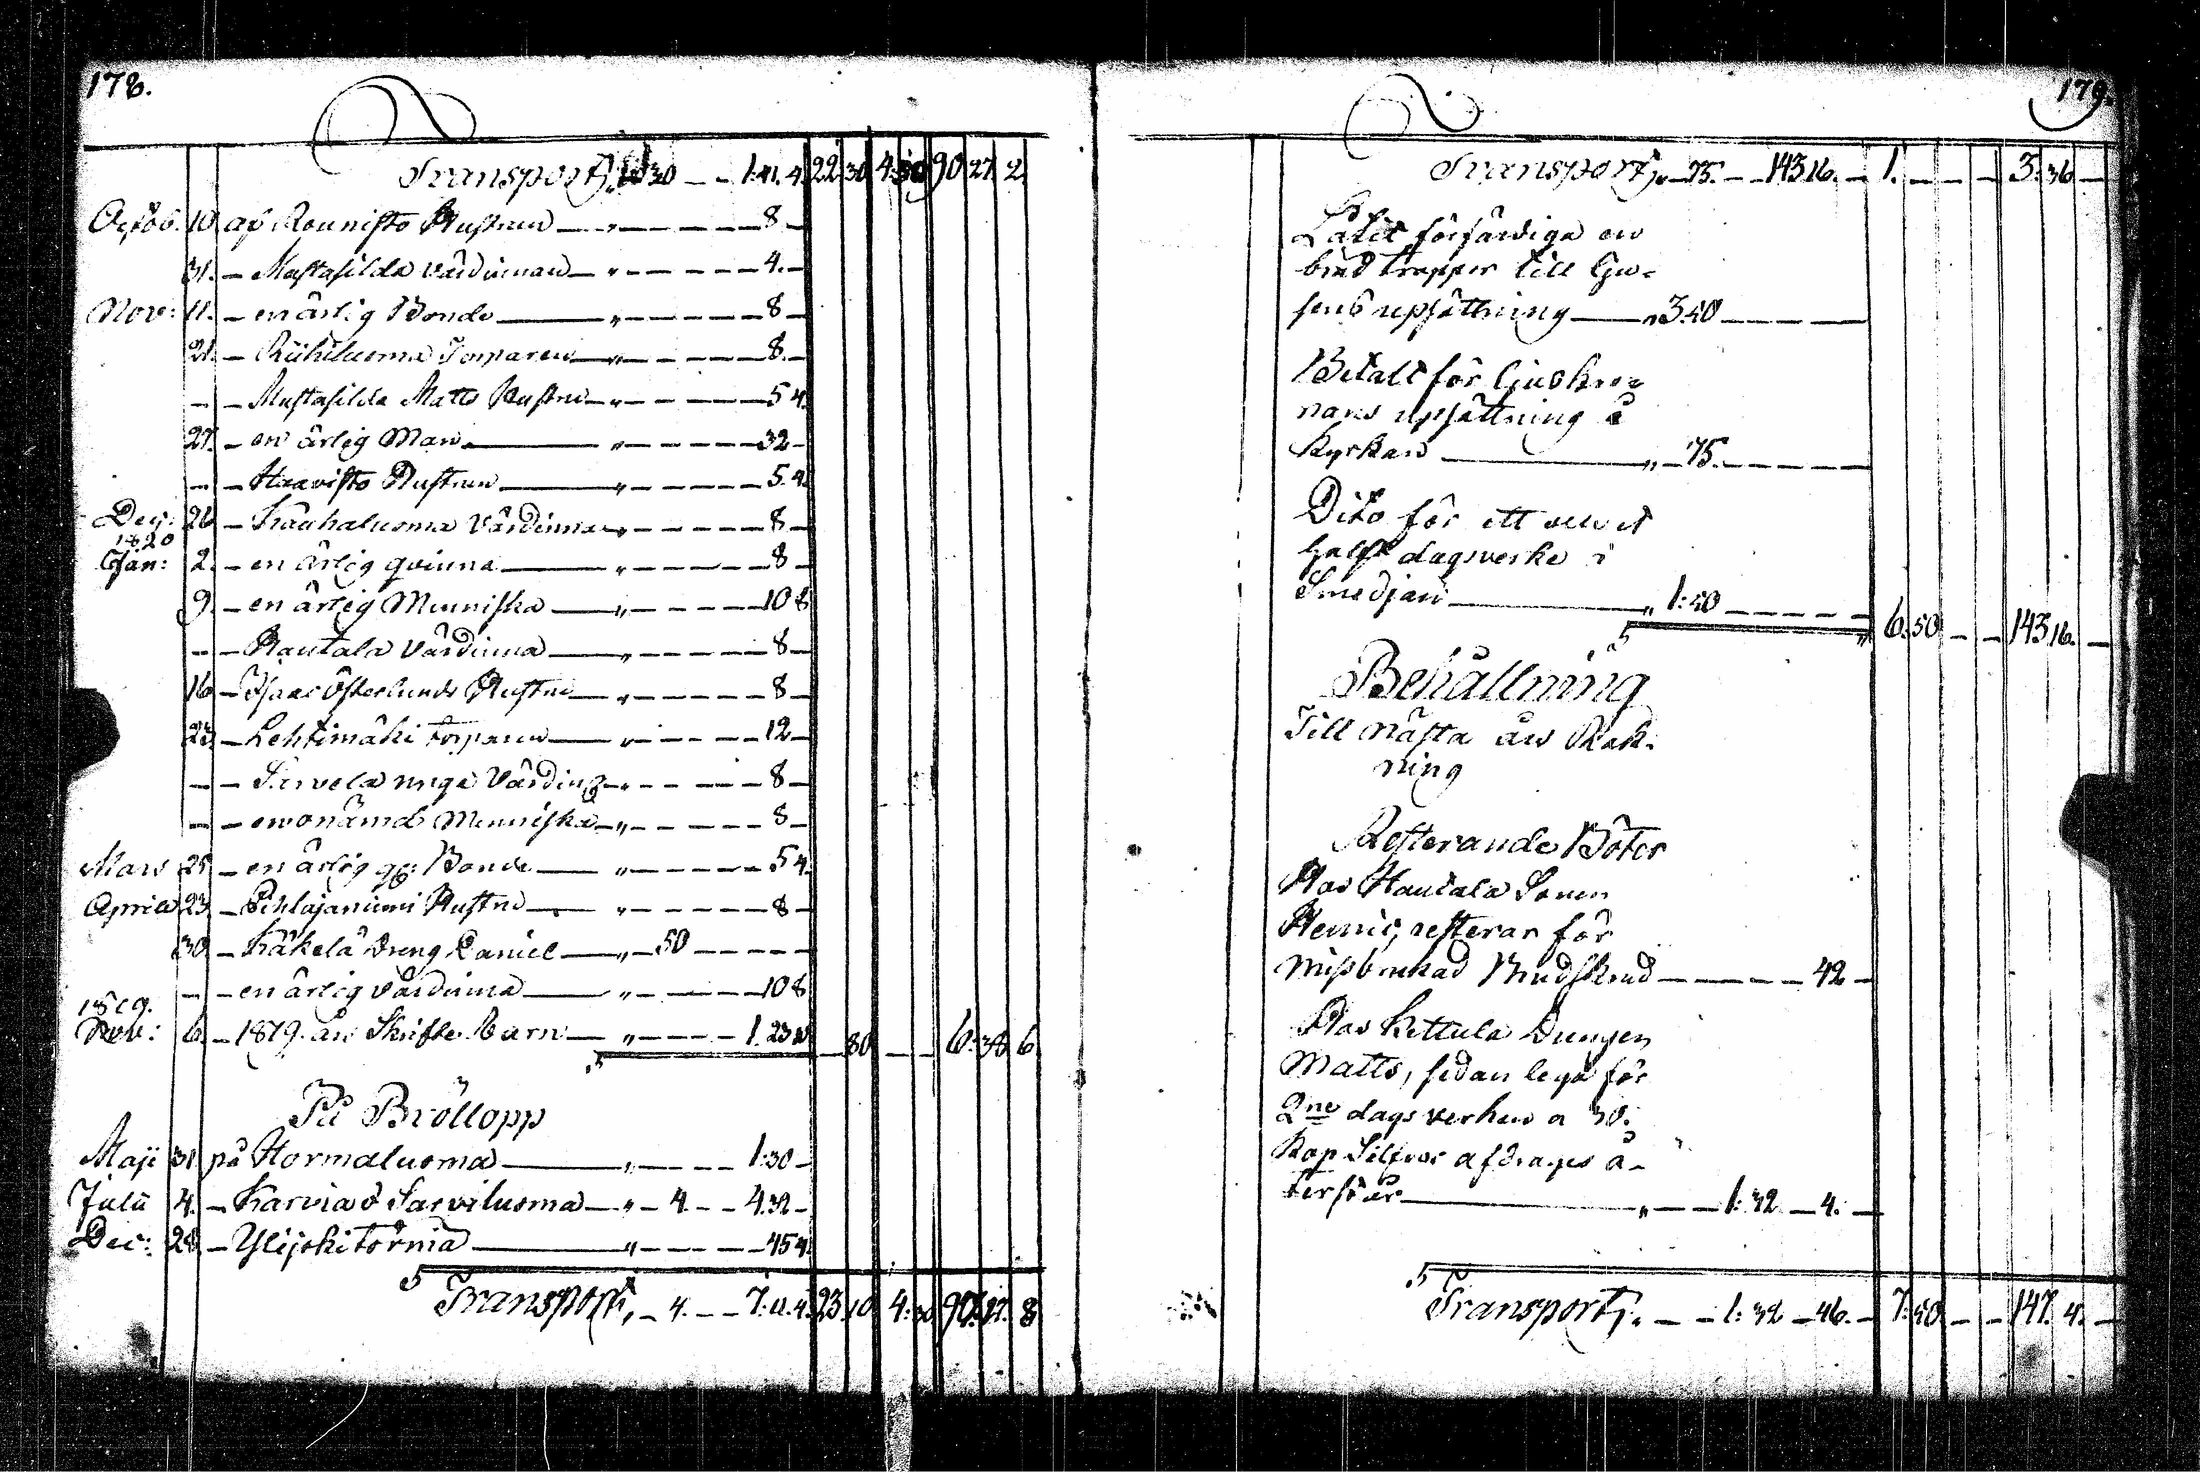 178.
Transport, 30 — — 1.41.4. 22 30 4:30 90 27 2.
Octob. 10 af Rounisto Hustrun — „ — — — — 8 —
31. — Mustasilda värdinnan — „ — — — — 4. —
Nov: 11. — en ärlig Bonde — „ — — — — 8 —
21. — Riihiluoma Torparen — „ — — — — 8. —
— — Mustasilda Matts Hustru — „ — — — — 5 4.
27. — en ärlig Man — „ — — — — 32 —
— — Haavisto Hustrun — „ — — — — 5.4.
Dec: 26 — Kauhaluoma Värdinna — „ — — — — 8 —
1820
Jan: 2. — en ärlig qvinna — „ — — — — 8 —
9. — en ärlig Menniska — „ — — — — 10 8
— — Rautala Värdinna — „ — — — — 8 —
16 — Isaac Österlunds Hustru — „ — — — — 8 —
23 — Lehtimäki torparen — „ — — — — 12 —
— — unga Värdin — „ — — — — 8 —
— — en onämd Menniska — „ — — — — 8 —
Mars 25 — en ärlig Bonde — „ — — — — 5 4.
April 23 — Pihlajaniemi Hustru — „ — — — — 8 —
30. — Käkelä Dreng Daniel — „ — 50 — — — —
— — en ärlig Värdinna — „ — — — — 10 8
1819.
Nov: 6. — 1819. års Skrifte barn — „ — — — 1. 23 — 80 — — 6: 38 6
På Bröllopp
Maji 31 på Hormaluoma — „ — — — 1:30 —
Julii 4. — Karvia o Sarviluoma — „ — 4. — — 4.32 —
Dec: 28 — Ylijoki törmä — „ — — — — 45 4.
Transport, — 4. — — 7.11.4. 23.10 4:30 97.17. 8
179.
Transport, „ — 75. — — 143 16. — 1. — — — 3. 36 —
Låtit förfärdiga en
bred trapper till Lju-
sens upsättning — „ 3.50 — — — —
Betalt för Ljuskro-
nans upsättning i
Kyrkan — „ — 75. — — — —
Dito för ett och et
halft dagsverke i
Smedjan — „ 1:50 — — — — 6.50 — — 143 16. —
Behållning
Till nästa års Räk-
ning
Resterande Böter
Hos Hautala Sonen
Henric, resterar för
missbrukad Brudskrud — — — — 42 —
Hos Kettula Drengen
Matts, sedan lega för
2ne dagsverken a 30.
Kop Silfver afdrages å-
terstår — „ — — 1: 32 — 4. —
Transport, — — 1: 32 — 46. — 7:50 — — 147. 4. —